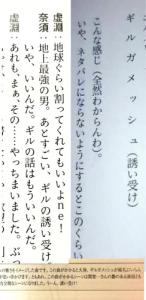 ギルガメッシュ（誘い受け）
こんな感じ（全然わからんわ）。
いや、ネタバレにならないようにするとこのくらい
虚淵：地球ぐらい割ってくれてもいいよne！
奈須：地上最強の男。あとすごい、ギルの誘い受け
いや、いいんだ。ギルの話はもういいんだ。
虚淵：あれも、まぁ、その……やっちまいました。ぶっ